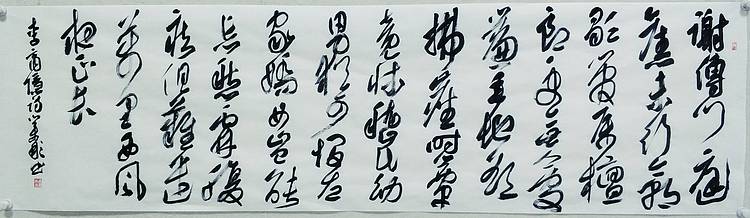 謝傅门庭
舊末行今朝
歌管屬檀
郎更無人處
簾垂地欲
拂塵時簟
竟床嵇氏幼
男猶可憫左
家嬌女豈能
忘愁霖腹
疾俱難遣
萬里西風
夜正長
李商隱詩